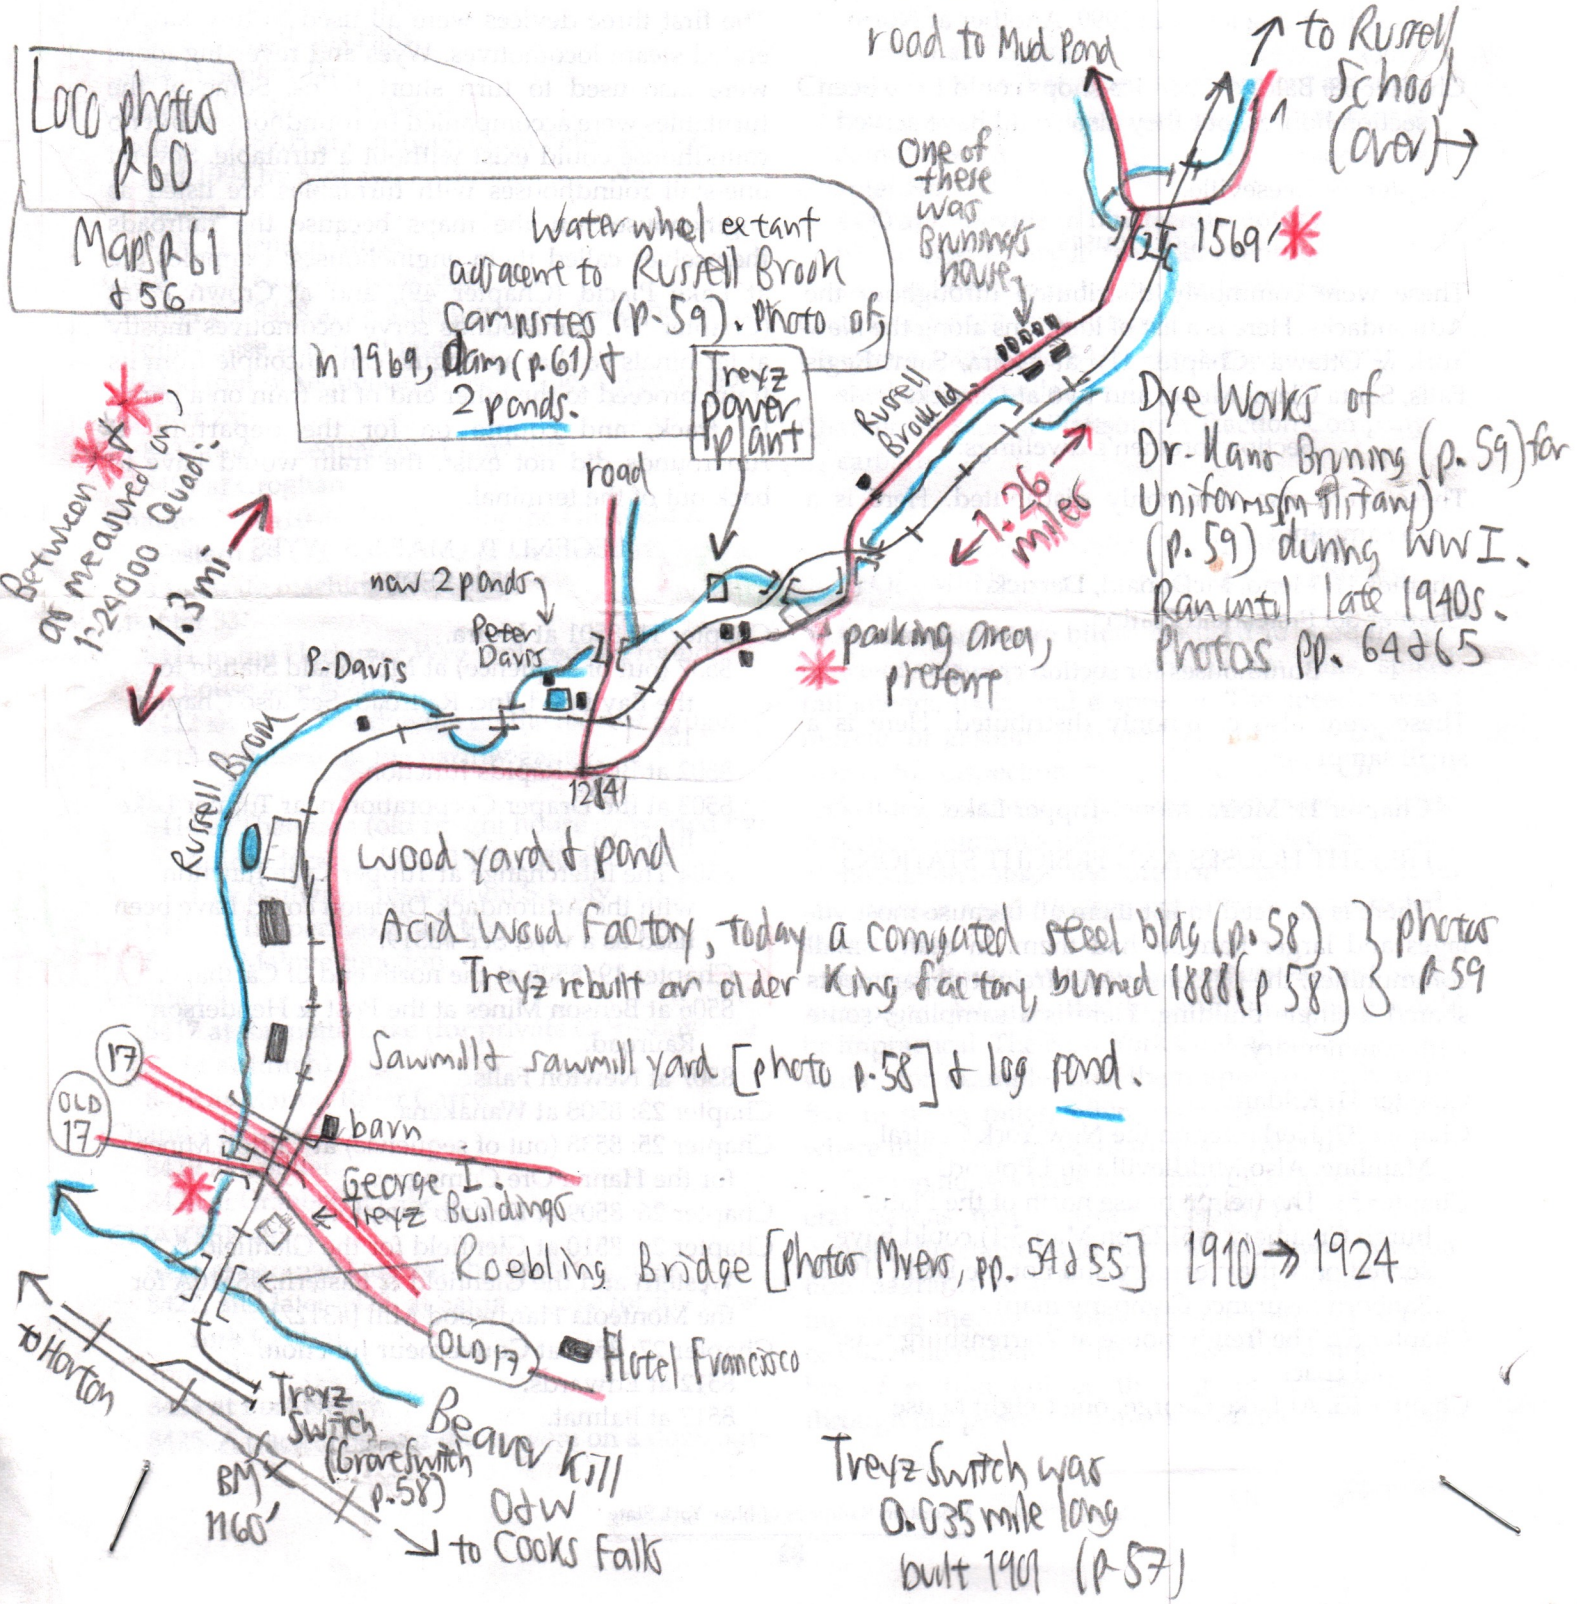 Loco photos
p60
Maps p. 61
& 56
road to Mud Pond
to Russell
School
(over)
One of
these
was
Bruning's
house
1569'
Waterwheel extant
adjacent to Russell Brook
Campsites (p. 59). Photo of
in 1969, Dam (p. 61) &
2 ponds.
Treyz
power
plant
road
Russell
Brook Rd.
1.26
miles
Between
as measured on
1:24000 Quad.
1.3 mi
Dye Works of
Dr. Hans Bruning (p. 59) for
Uniforms (military)
(p. 59) during WWI.
Ran until late 1940s.
Photos pp. 64 & 65
now 2 ponds
Peter
Davis
P. Davis
parking area,
present
Russell Brook
1284
wood yard & pond
Acid Wood Factory, today a corrugated steel bldg (p. 58)
Treyz rebuilt an older King factory, burned 1888 (p 58)
photos
p. 59
Sawmill & sawmill yard [photo p. 58] & log pond.
17
OLD
17
barn
George I.
Treyz Buildings
Roebling Bridge [Photos Myers, pp. 54 & 55] 1910 → 1924
OLD 17
Hotel Francisco
to Horton
Treyz
Switch
(Grove Switch
p. 58)
Beaver Kill
BM
1160'
O&W
to Cooks Falls
Treyz Switch was
0.035 mile long
built 1901 (p 57)